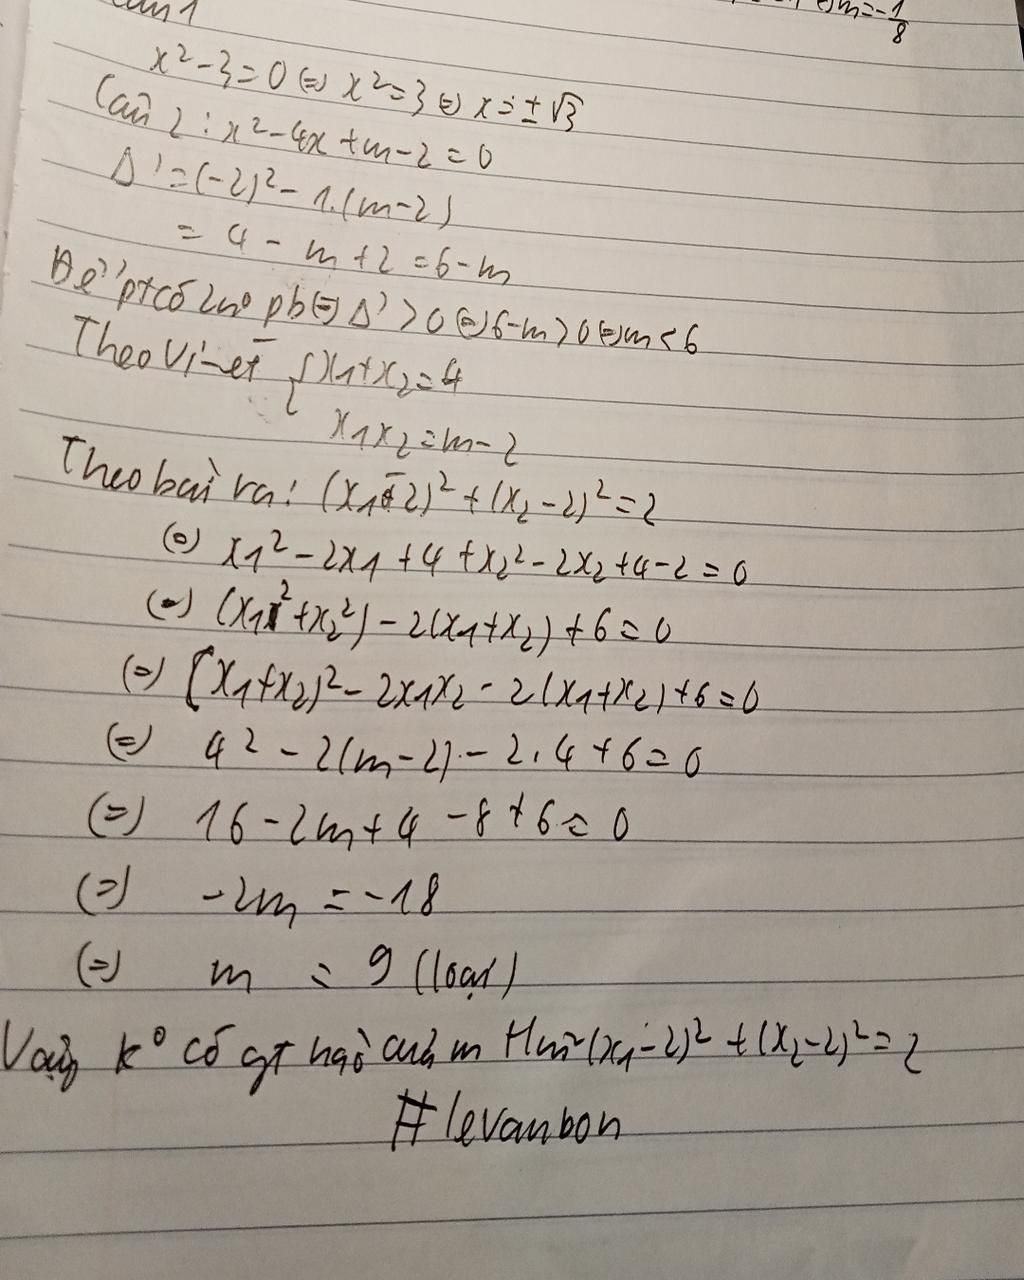 m=-1/8
x²-3=0 (=) x²=3 (=) x=±√3
Câu 2: x²-4x+m-2=0
Δ'=(-2)²-1.(m-2)
= 4-m+2=6-m
Để pt có 2no pb (=) Δ'>0 (=) 6-m>0 (=) m<6
Theo Vi-et { x1+x2=4
x1x2=m-2
Theo bài ra: (x1-2)²+(x2-2)²=2
(=) x1²-2x1+4+x2²-2x2+4-2=0
(=) (x1²+x2²)-2(x1+x2)+6=0
(=) [x1+x2)²-2x1x2-2(x1+x2)+6=0
(=) 4²-2(m-2)-2.4+6=0
(=) 16-2m+4-8+6=0
(=) -2m=-18
(=) m=9 (loại)
Vậy k° có gt nào của m (x1-2)²+(x2-2)²=2
#levanbon